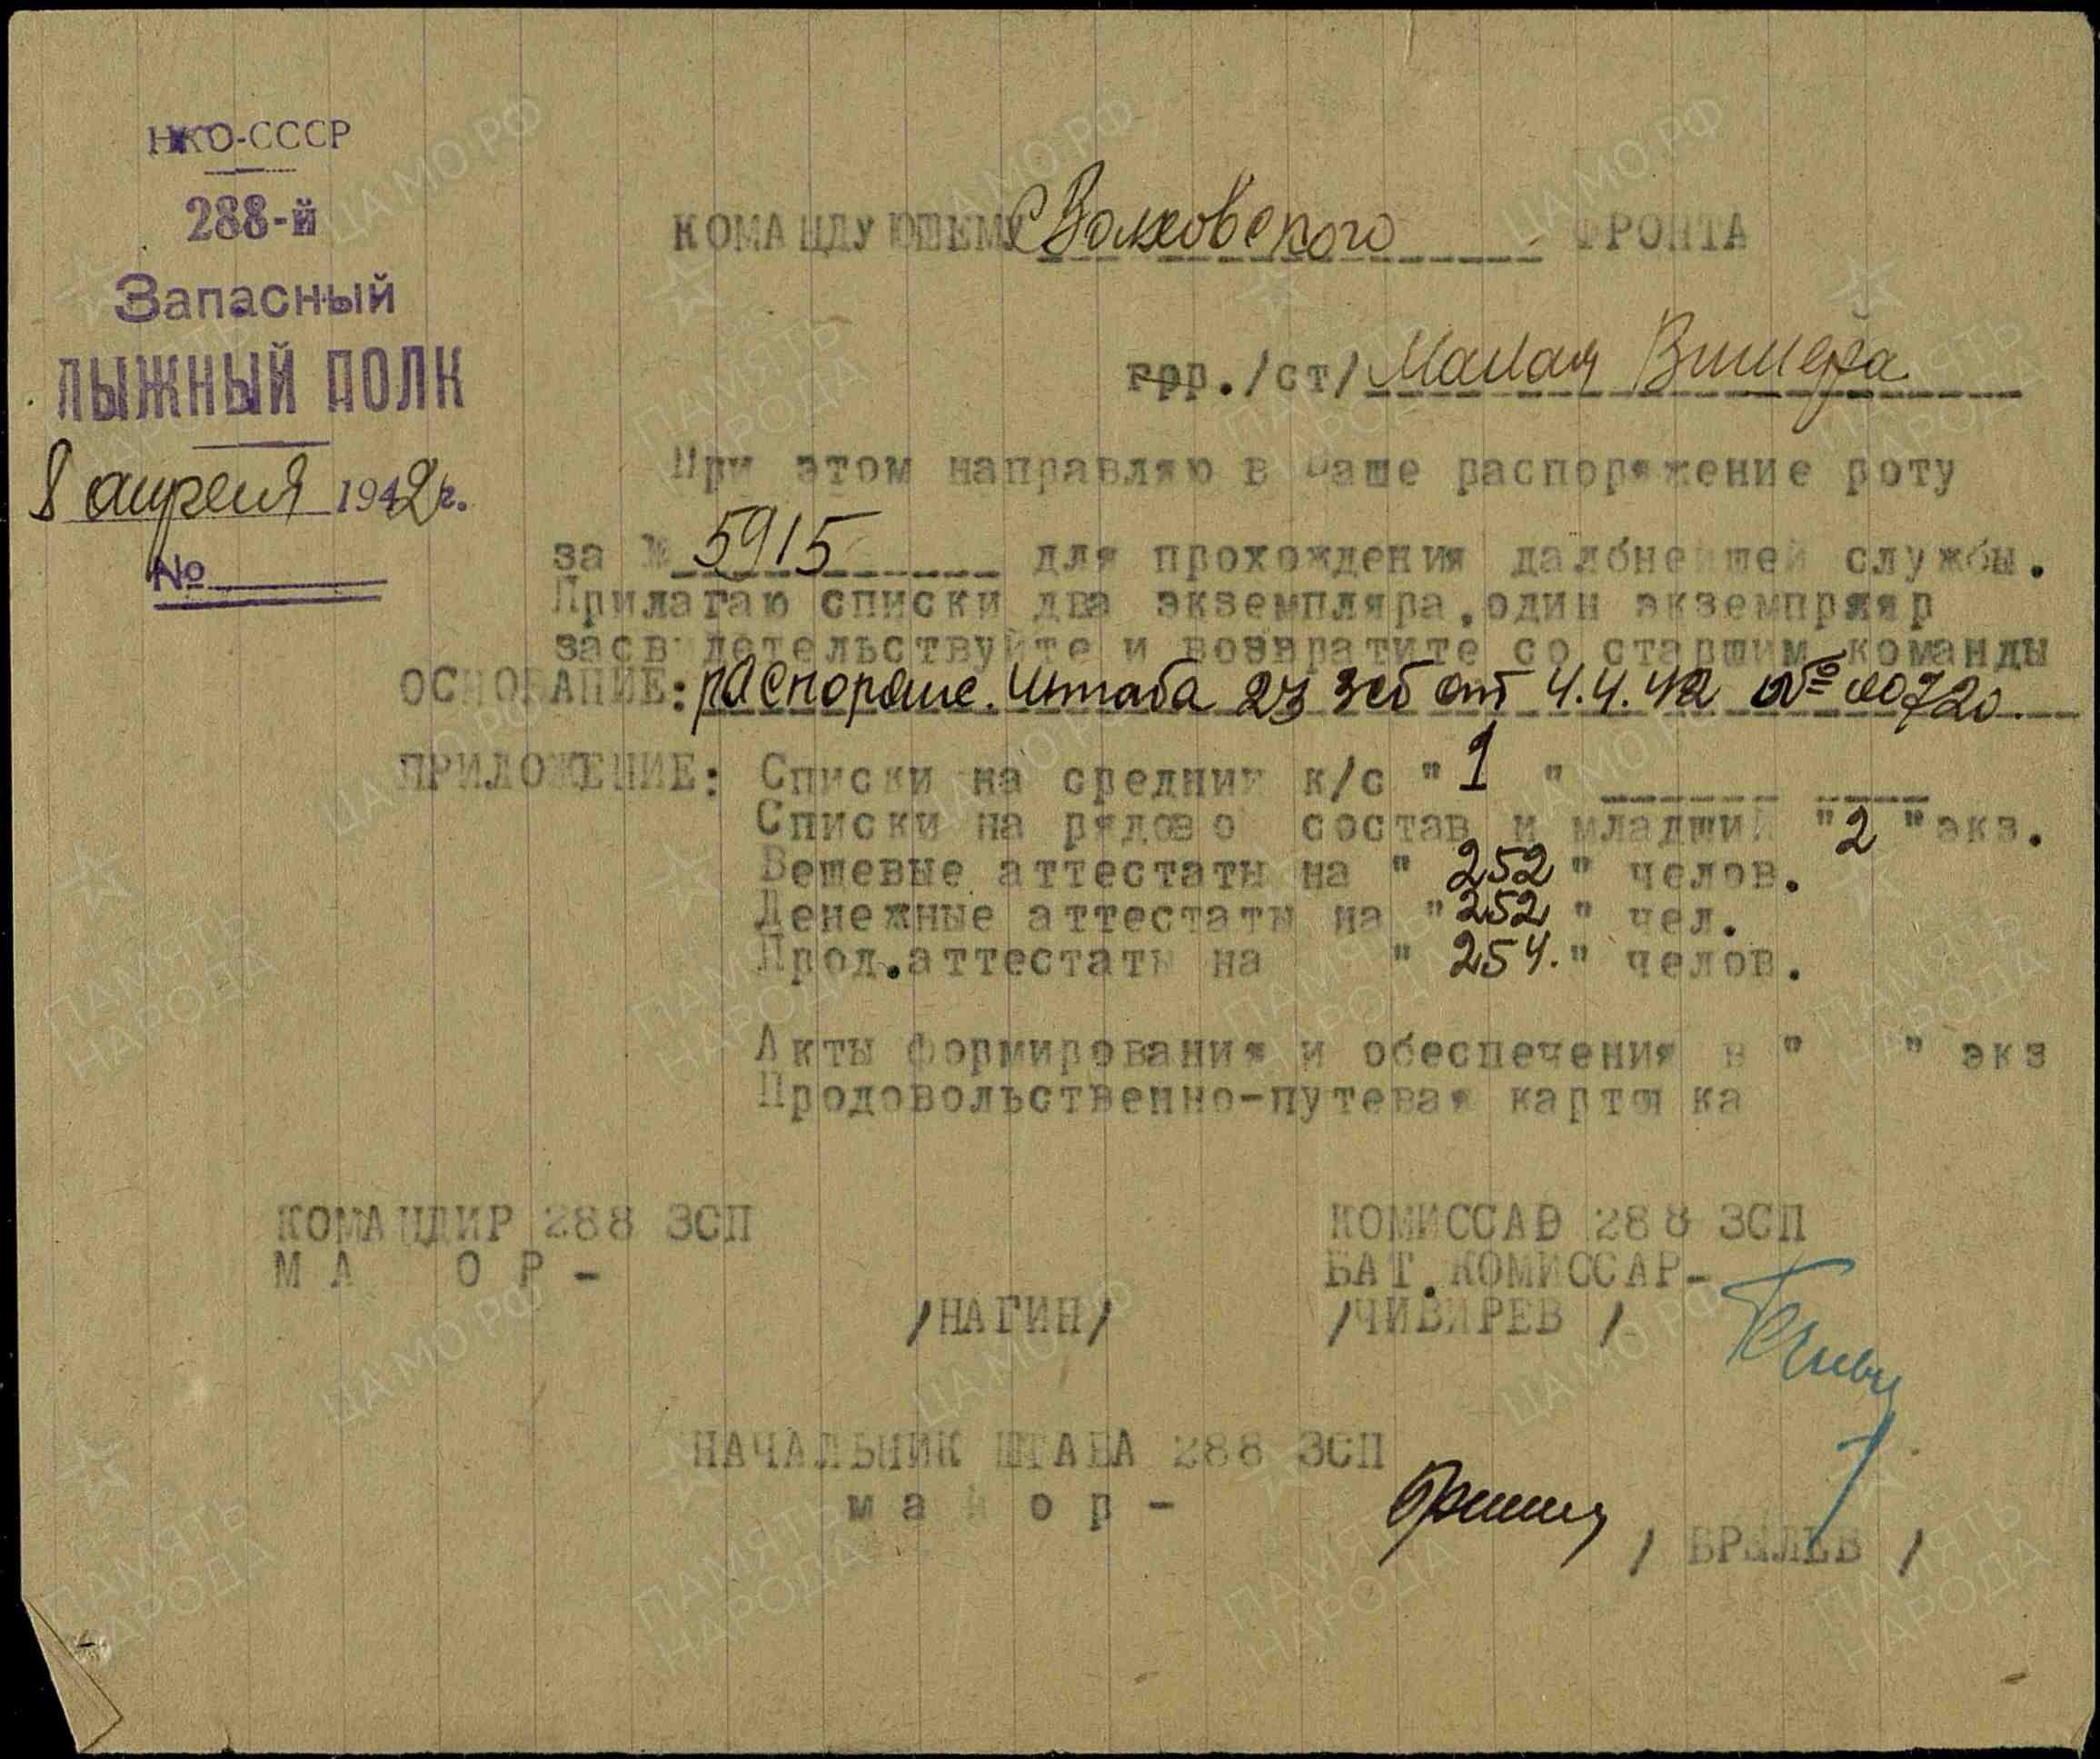 НКО-СССР
288-й
Запасный
ЛЫЖНЫЙ ПОЛК
8 апреля 1942г.
№
КОМАНДУЮШЕМУ Волховского ФРОНТА
гор./ст/ Малая Вишера
При этом направляю в Ваше распоряжение роту
за № 5915 для прохождения далбнейшей службы.
Прилагаю списки два экземпляра,один экземпряяр
засвидетельствуйте и возвратите со старшим команды
ОСНОВАНИЕ: распоряже. Штаба 23 зсб от 4.4.42 № 00720.
ПРИЛОЖЕНИЕ: Списки на средний к/с " 1 "
Списки на рядово состав и младший "2" экз.
Вешевые аттестаты на " 252 " челов.
Денежные аттестаты на "252 " чел.
Прод.аттестаты на " 254." челов.
Акты формирования и обеспечения в " " экз
Продовольственно-путевая карточка
КОМАНДИР 288 ЗСП
МА ОР -
/НАГИН/
КОМИССАР 288 ЗСП
БАТ.КОМИССАР-
/ЧИВИРЕВ /
НАЧАЛЬНИК ШТАБА 288 ЗСП
майор -
/ БРАЛЕВ /
ЦАМО РФ
ПАМЯТЬ НАРОДА